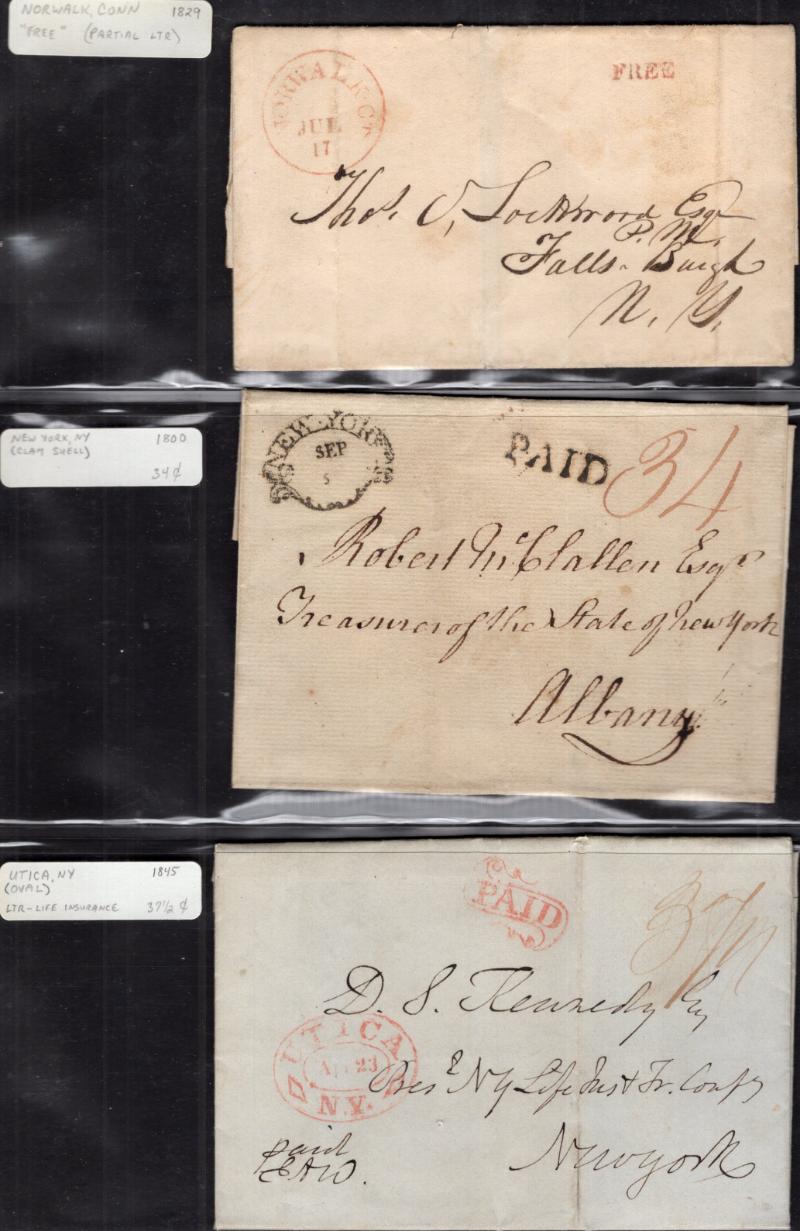 NORWALK, CONN 1829
"FREE" (PARTIAL LTR)
NORWALK CT
JUL
17
FREE
Thos. S, Lockwood Esqr
P. M.
Falls-Burgh
N. Y.
NEW YORK, NY 1800
(CLAM SHELL)
34¢
NEW-YORK
SEP
5
PAID 34
Robert McClallen Esqr
Treasurer of the State of New York
Albany
UTICA, NY 1845
(OVAL)
LTR-LIFE INSURANCE 37½ ¢
PAID
D. S. Kennedy Esq
UTICA
23
N.Y.
Prest NY Life Inst & Tr. Compy
New York
paid